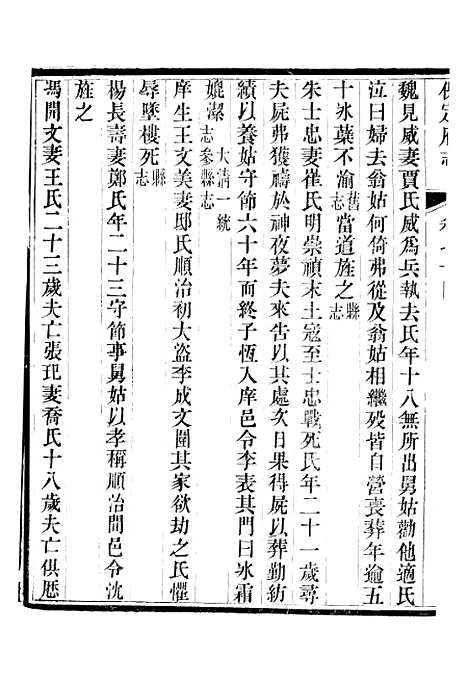 保定府志
魏見威妻賈氏威爲兵執去氏年十八無所出舅姑勸他適氏
泣曰婦去翁姑何倚弗從及翁姑相繼歿皆自營喪葬年逾五
十氷蘗不渝舊志當道旌之縣志
朱士忠妻崔氏明崇禎末土寇至士忠戰死氏年二十一歲尋
夫屍弗獲禱於神夜夢夫來告以其處次日果得屍以葬勤紡
績以養姑守節六十年而終子恆入庠邑令李表其門曰氷霜
媲潔大淸一統志參縣志
庠生王文美妻邸氏順治初大盜李成文圍其家欲劫之氏懼
辱墜樓死縣志
楊長壽妻鄭氏年二十三守節事舅姑以孝稱順治間邑令沈
旌之
馮開文妻王氏二十三歲夫亡張玘妻喬氏十八歲夫亡俱歷